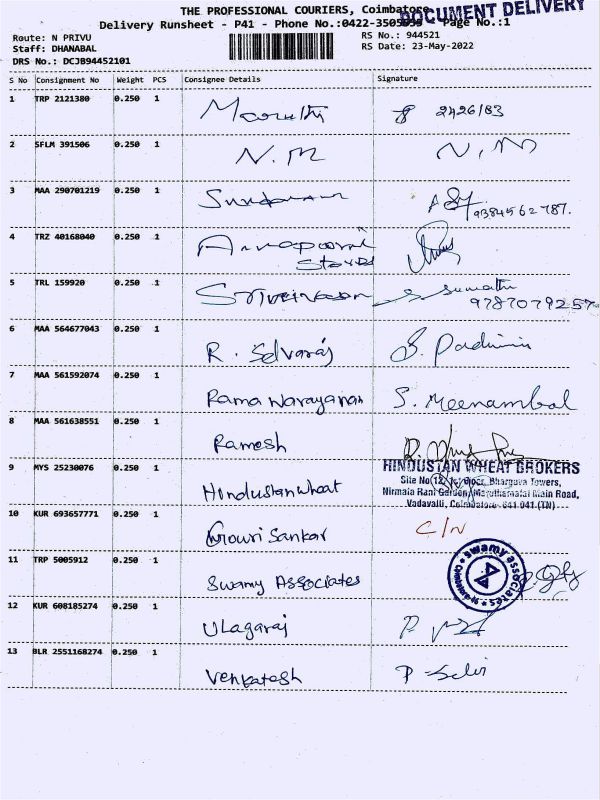 THE PROFESSIONAL COURIERS, Coimbatore
DOCUMENT DELIVERY
Delivery Runsheet - P41 - Phone No.:0422-3505 Page No.:1
Route: N PRIVU
RS No.: 944521
Staff: DHANABAL
RS Date: 23-May-2022
DRS No.: DCJB94452101
S No Consignment No Weight PCS Consignee Details Signature
1 TRP 2121380 0.250 1 Maruthi 2426/83
2 SFLM 391506 0.250 1 N.M N.M
3 MAA 290701219 0.250 1 Sundaram 9384562787.
4 TRZ 40168040 0.250 1 Annapoorni
Stores
5 TRL 159920 0.250 1 Srinivasan Sumathi
9787079257
6 MAA 564677043 0.250 1 R. Selvaraj S. Padmini
7 MAA 561592074 0.250 1 Rama Narayanan S. Meenambal
8 MAA 561638551 0.250 1 Ramesh
9 MYS 25230076 0.250 1 Hindustan wheat
HINDUSTAN WHEAT BROKERS
Site No.12, 1st Floor, Bhargava Towers,
Nirmala Rani Garden, Maruthamalai Main Road,
Vadavalli, Coimbatore-641 041.(TN)
10 KUR 693657771 0.250 1 Gowri Sankar C/N
11 TRP 5005912 0.250 1 Swamy Associates
swamy associates
12 KUR 608185274 0.250 1 Ulagaraj
13 BLR 2551168274 0.250 1 Venkatesh P Selvi